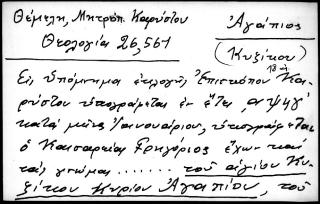 Θέμελη, Μητροπ. Καρύστου
Ἀγάπιος
Θεολογία 26,561
(Κυζίκου)
18 αἰ.
Εἰς ὑπόμνημα ἐκλογῆς Ἐπισκόπου Κα-
ρύστου ὑπογράφεται ἐν ἔτει, αψμγ'
κατὰ μῆνα Ἰαννουάριον, ὑπογράφεται
ὁ Καισαρείας Γρηγόριος ἔχων καὶ
τὰς γνώμας ....... τοῦ ἁγίου Κυ-
ζίκου κυρίου Ἀγαπίου, τοῦ